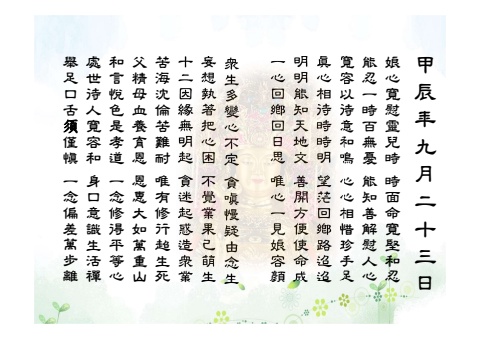 甲辰年九月二十三日
娘心寬慰靈兒時 時面命寬堅和忍
能忍一時百無憂 能知善解慰人心
寬容以待意和鳴 心心相惜珍手足
真心相待時時明 望茫回鄉路迢迢
明明能知天地文 善開方便使命成
一心回鄉回日思 唯心一見娘容顏
眾生多變心不定 貪嗔慢疑由念生
妄想執著把心困 不覺業果己萌生
十二因緣無明起 貪迷起惑造眾業
苦海沈倫苦難耐 唯有修行超生死
父精母血養育恩 恩惠大如萬重山
和言悅色是孝道 一念修得平等心
處世待人寬容和 身口意識生活禪
舉足口舌須僅慎 一念偏差萬步離